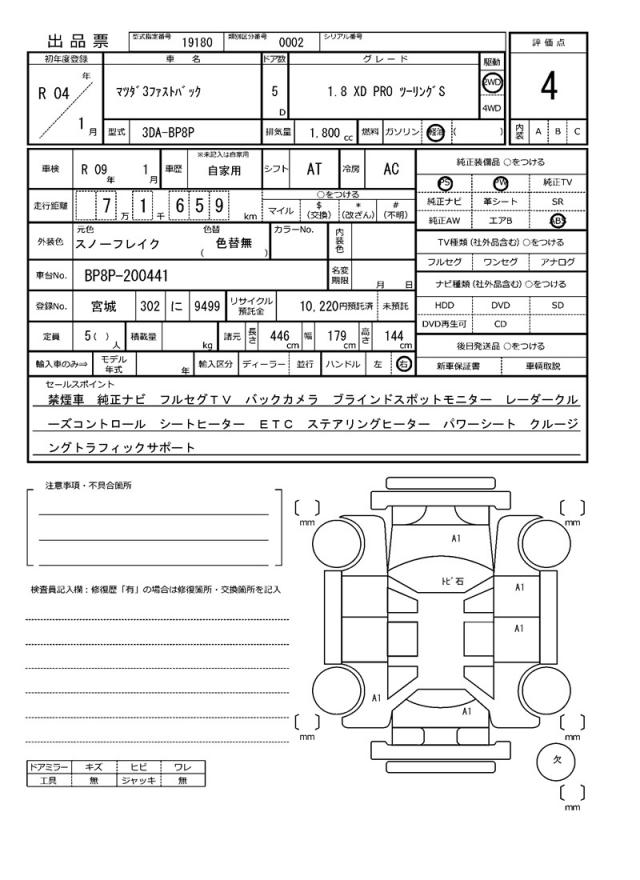 出品票 型式指定番号 19180 類別区分番号 0002 シリアル番号
評価点
4
内装 A B C
初年度登録 車名 ドア数 グレード 駆動
R 04 年 1 月 マツダ3ファストバック 5 D 1.8 XD PRO ツーリングS 2WD 4WD
型式 3DA-BP8P 排気量 1.800 cc 燃料 ガソリン 軽油 ( )
車検 R 09 年 1 月 車歴 ※未記入は自家用 自家用 シフト AT 冷房 AC
走行距離 7 万 1 千 6 5 9 km ○をつける マイル $ (交換) * (改ざん) # (不明)
外装色 元色 スノーフレイク 色替 ( 色替無 ) カラーNo. 内装色
車台No. BP8P-200441 名変期限 月 日
登録No. 宮城 302 に 9499 リサイクル預託金 10,220円預託済 未預託
定員 5( )人 積載量 kg 諸元 長さ 446 cm 幅 179 cm 高さ 144 cm
輸入車のみ⇒ モデル年式 年 輸入区分 ディーラー 並行 ハンドル 左 右
純正装備品 ○をつける
PS PW 純正TV
純正ナビ 革シート SR
純正AW エアB ABS
TV種類(社外品含む)○をつける
フルセグ ワンセグ アナログ
ナビ種類(社外品含む)○をつける
HDD DVD SD
DVD再生可 CD
後日発送品 ○をつける
新車保証書 車輌取説
セールスポイント
禁煙車 純正ナビ フルセグTV バックカメラ ブラインドスポットモニター レーダークル
ーズコントロール シートヒーター ETC ステアリングヒーター パワーシート クルージ
ングトラフィックサポート
注意事項・不具合箇所
検査員記入欄：修復歴「有」の場合は修復箇所・交換箇所を記入
ドアミラー キズ ヒビ ワレ
工具 無 ジャッキ 無
[ ] mm [ ] mm
A1
トビ石
A1
A1
A1
A1
[ ] mm [ ] mm
欠
[ ] mm